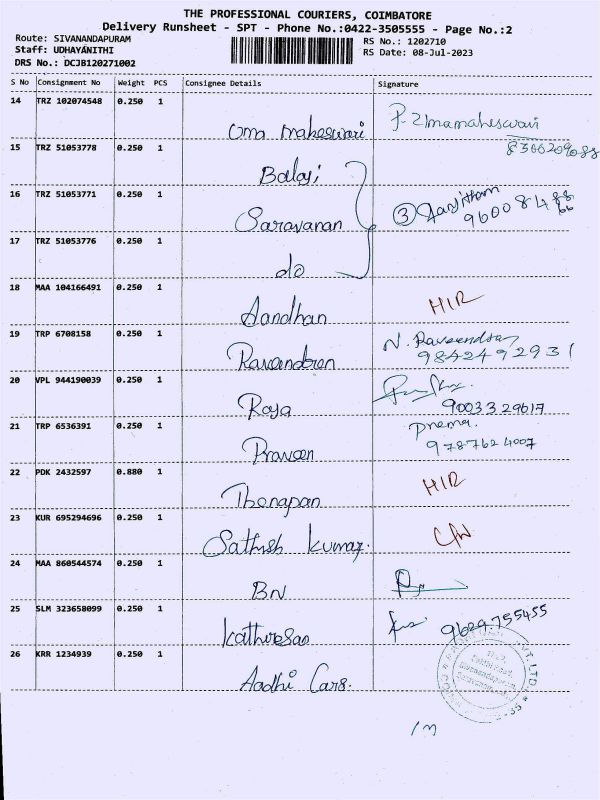 THE PROFESSIONAL COURIERS, COIMBATORE
Delivery Runsheet - SPT - Phone No.:0422-3505555 - Page No.:2
Route: SIVANANDAPURAM
Staff: UDHAYANITHI
DRS No.: DCJB120271002
RS No.: 1202710
RS Date: 08-Jul-2023
S No Consignment No Weight PCS Consignee Details Signature
14 TRZ 102074548 0.250 1
Uma Maheswari P. Umamaheswari
15 TRZ 51053778 0.250 1
Balaji
16 TRZ 51053771 0.250 1
Saravanan ③
17 TRZ 51053776 0.250 1
do
18 MAA 104166491 0.250 1
Aandhan HIR
19 TRP 6708158 0.250 1
Raveendren N. Raveendran
9842492931
20 VPL 944190039 0.250 1
Raja 9003329617
21 TRP 6536391 0.250 1
Praveen Prema
9787624007
22 PDK 2432597 0.880 1
Thenapan HIR
23 KUR 695294696 0.250 1
Sathish Kumar. C/W
24 MAA 860544574 0.250 1
BN
25 SLM 323658099 0.250 1
Kathiresan 9629755455
26 KRR 1234939 0.250 1
Aadhi Cars.